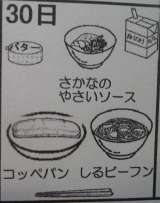 30日
バター
さかなの
やさいソース
コッペパン しるビーフン